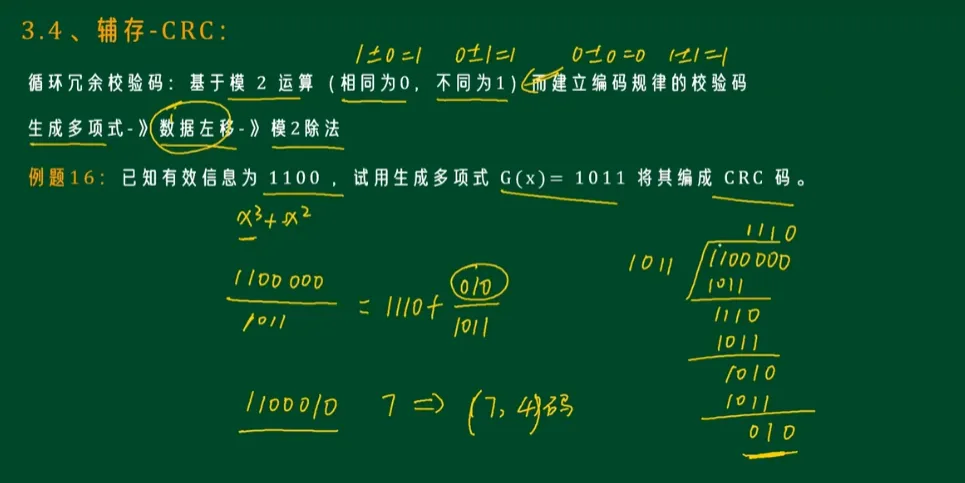 3.4、辅存-CRC:
1±0=1 0±1=1 0±0=0 1±1=1
循环冗余校验码：基于模 2 运算（相同为0，不同为1）而建立编码规律的校验码
生成多项式-》数据左移-》模2除法
例题16：已知有效信息为 1100 ，试用生成多项式 G(x)= 1011 将其编成 CRC 码。
x³+x²
1100 000
1011
= 1110+
010
1011
1100010 7 ⇒ (7,4)码
1110
1011 1100000
1011
1110
1011
1010
1011
010